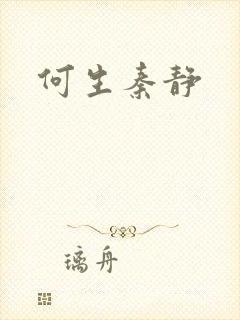 何生秦静
璃舟